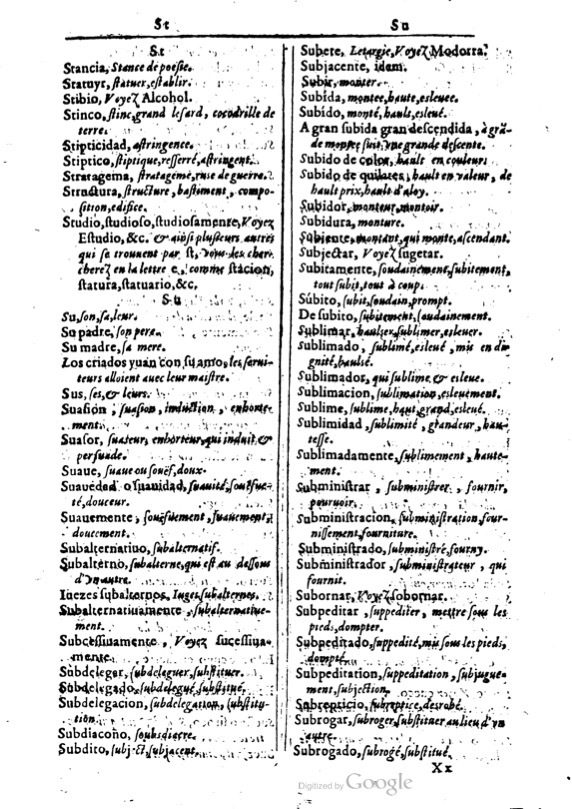 St
Su
St
Stancia, Stance de poësie.
Statuyr, statuer, establir.
Stibio, Voyez Alcohol.
Stinco, stinc, grand lesard, cocodrille de
terre.
Stipticidad, astringence.
Stiptico, stiptique, resserré, astringent.
Stratagema, stratagéme, ruse de guerre.
Structura, structure, bastiment, compo-
sition, edifice.
Studio, studioso, studiosamente, Voyez
Estudio, &c. & ainsi plusieurs autres
qui se trouuent par st, vous les cher-
cherez en la lettre e, comme stacion,
statura, statuario, &c,
Su
Su, son, sa, leur.
Su padre, son pere.
Su madre, sa mere.
Los criados yuan con su amo, les serui-
teurs alloient auec leur maistre.
Sus, ses, & leurs.
Suasion, suasion, induction, enhorte-
ment.
Suasor, suadeur, enhorteur, qui induit &
persuade.
Suaue, suaue ou souëf, doux.
Suauedad o suauidad, suauité, souëfue-
té, douceur.
Suauemente, souëfuement, suauement,
doucement.
Subalternatiuo, subalternatif.
Subalterno, subalterne, qui est au dessous
d'vn autre.
Iuezes subalternos, Iuges subalternes.
Subalternatiuamente, subalternatiue-
ment.
Subcessiuamente, Voyez sucessiua-
mente.
Subdelegar, subdeleguer, substituer.
Subdelegado, subdelegué, substitué.
Subdelegacion, subdelegation, substitu-
tion.
Subdiacono, sousdiacre.
Subdito, subject, subjacent.
Subete, Letargie, Voyez Modorra.
Subjacente, idem.
Subir, monter.
Subida, montee, haute, esleuee.
Subido, monté, hault, esleué.
A gran subida gran descendida, à grã-
de montee suit vne grande descente.
Subido de color, hault en couleur.
Subido de quilates, hault en valeur, de
hault prix, hault d'aloy.
Subidor, monteur, montoir.
Subidura, monture.
Subiente, montant, qui monte, ascendant.
Subjectar, Voyez sugetar.
Subitamente, soudainement, subitement,
tout subit, tout à coup.
Súbito, subit, soudain, prompt.
De subito, subitement, soudainement.
Sublimar, haulser, sublimer, esleuer.
Sublimado, sublimé, esleué, mis en di-
gnité, haulsé.
Sublimador, qui sublime & esleue.
Sublimacion, sublimation, esleuement.
Sublime, sublime, haut, grand, esleué.
Sublimidad, sublimité, grandeur, hau-
tesse.
Sublimadamente, sublimement, haute-
ment.
Subministrar, subministrer, fournir,
pouruoir.
Subministracion, subministration, four-
nissement, fourniture.
Subministrado, subministré, fourny.
Subministrador, subministrateur, qui
fournit.
Subornar, Voyez sobornar.
Subpeditar, suppediter, mettre sous les
pieds, dompter.
Subpeditado, suppedité, mis sous les pieds,
dompté.
Subpeditation, suppeditation, subjugue-
ment, subjection.
Subrepticio, subreptice, desrobé.
Subrogar, subroger, substituer au lieu d'vn
autre.
Subrogado, subrogé, substitué.
Xx
Digitized by Google